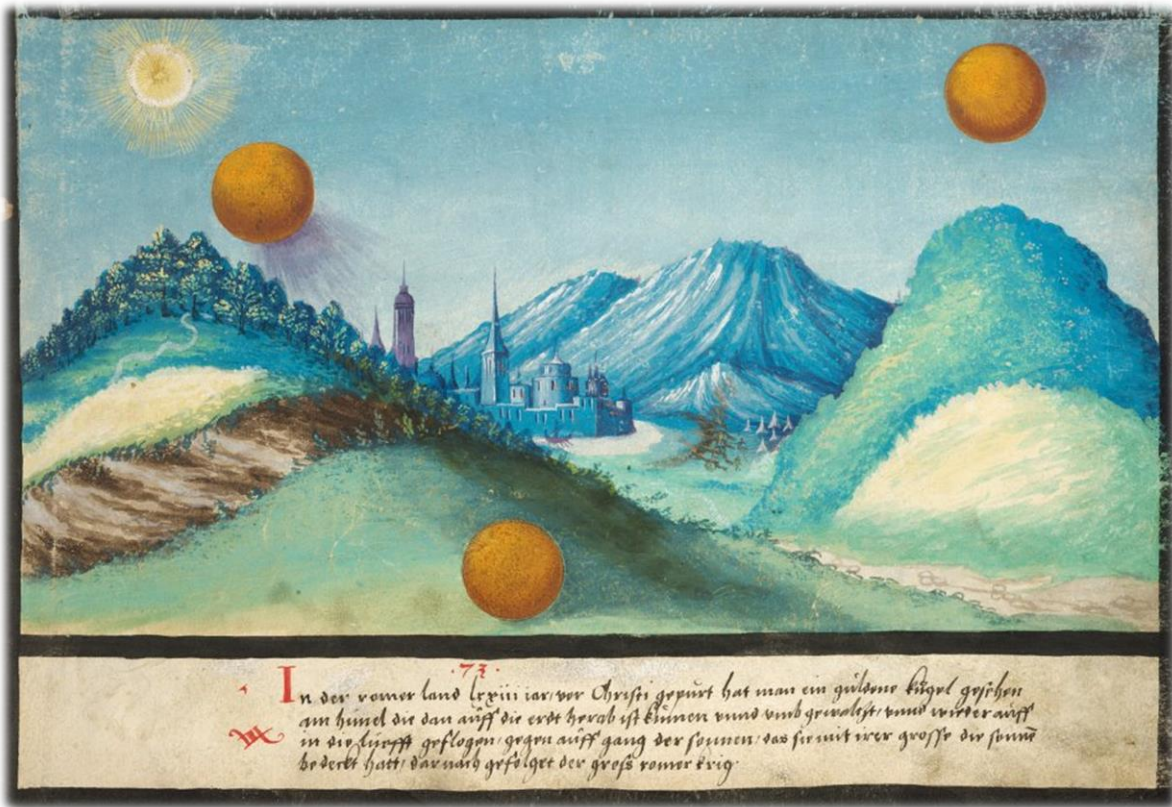 ·73·
In der romer land lxxiii iar vor Christi gepurt hat man ein guldene kugel gesehen
am himel die dan auff die erdt herab ist kumen vnnd vmb gewaltzt, vnnd wieder auff
in die lüefft geflogen, gegen auff gang der sonnen, das sie mit irer grosse die sonne
bedeckt hatt, darnach gefolget der gross romer krig